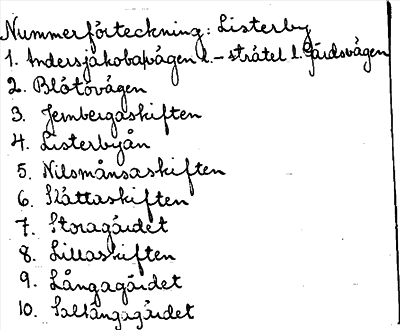 Nummerförteckning: Listerby
1. Andersjakobavägen l. - stråtel l. Gärdsvägen
2. Blötövägen
3. Jembergaskiften
4. Listerbyån
5. Nilsmånsaskiften
6. Slättaskiften
7. Storagärdet
8. Lillaskiften
9. Långagärdet
10. Saltängagärdet